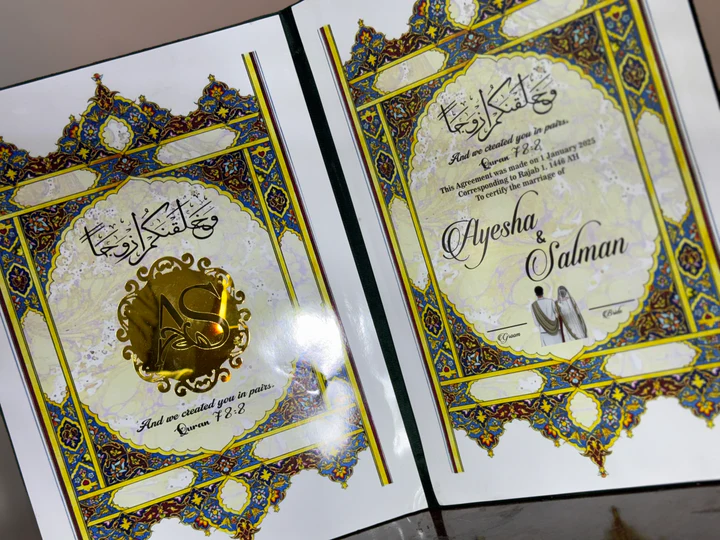 وَخَلَقْنَكُمْ أَزْوَجًا
AS
And we created you in pairs.
Quran 78:8
وَخَلَقْنَكُمْ أَزْوَجًا
And we created you in pairs.
Quran 78:8
This Agreement was made on 1 January 2025
Corresponding to Rajab 1, 1446 AH
To certify the marriage of
Ayesha
&
Salman
Groom
Bride